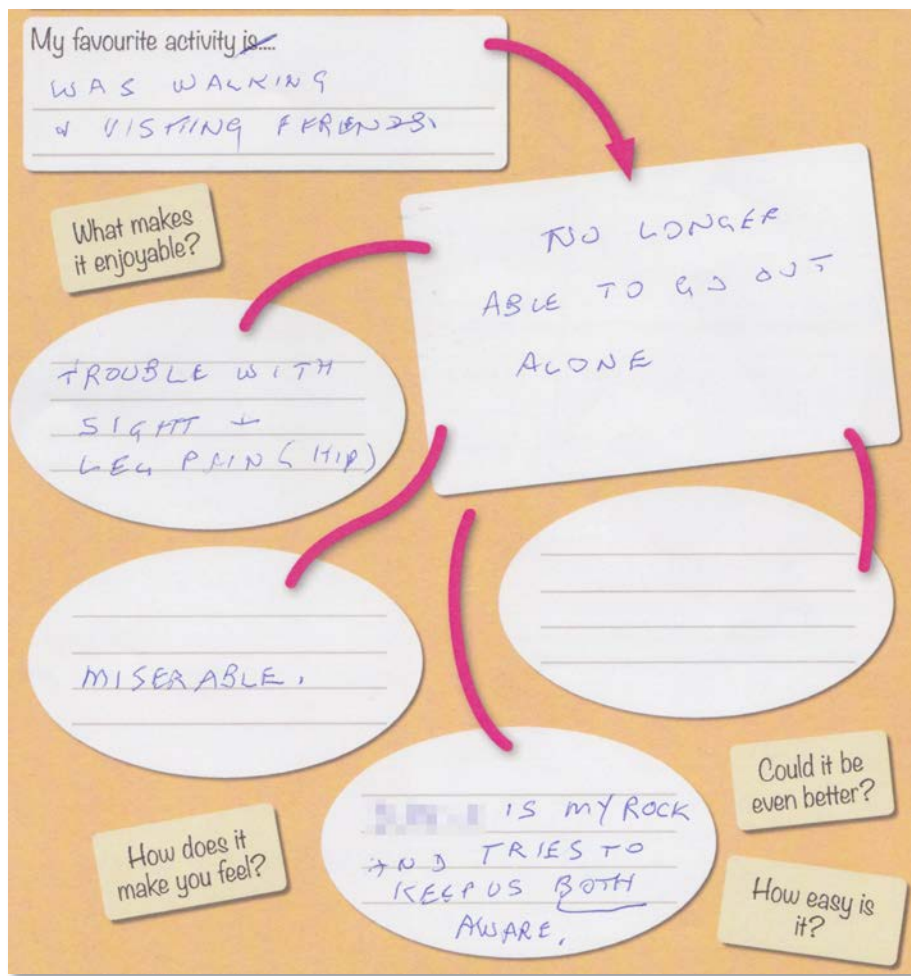 My favourite activity is....
WAS WALKING
& VISTING FERENDS.
NO LONGER
ABLE TO GO OUT
ALONE
What makes
it enjoyable?
TROUBLE WITH
SIGHT +
LEG PAIN (HIP)
MISERABLE.
IS MY ROCK
AND TRIES TO
KEEP US BOTH
AWARE.
How does it
make you feel?
Could it be
even better?
How easy is
it?